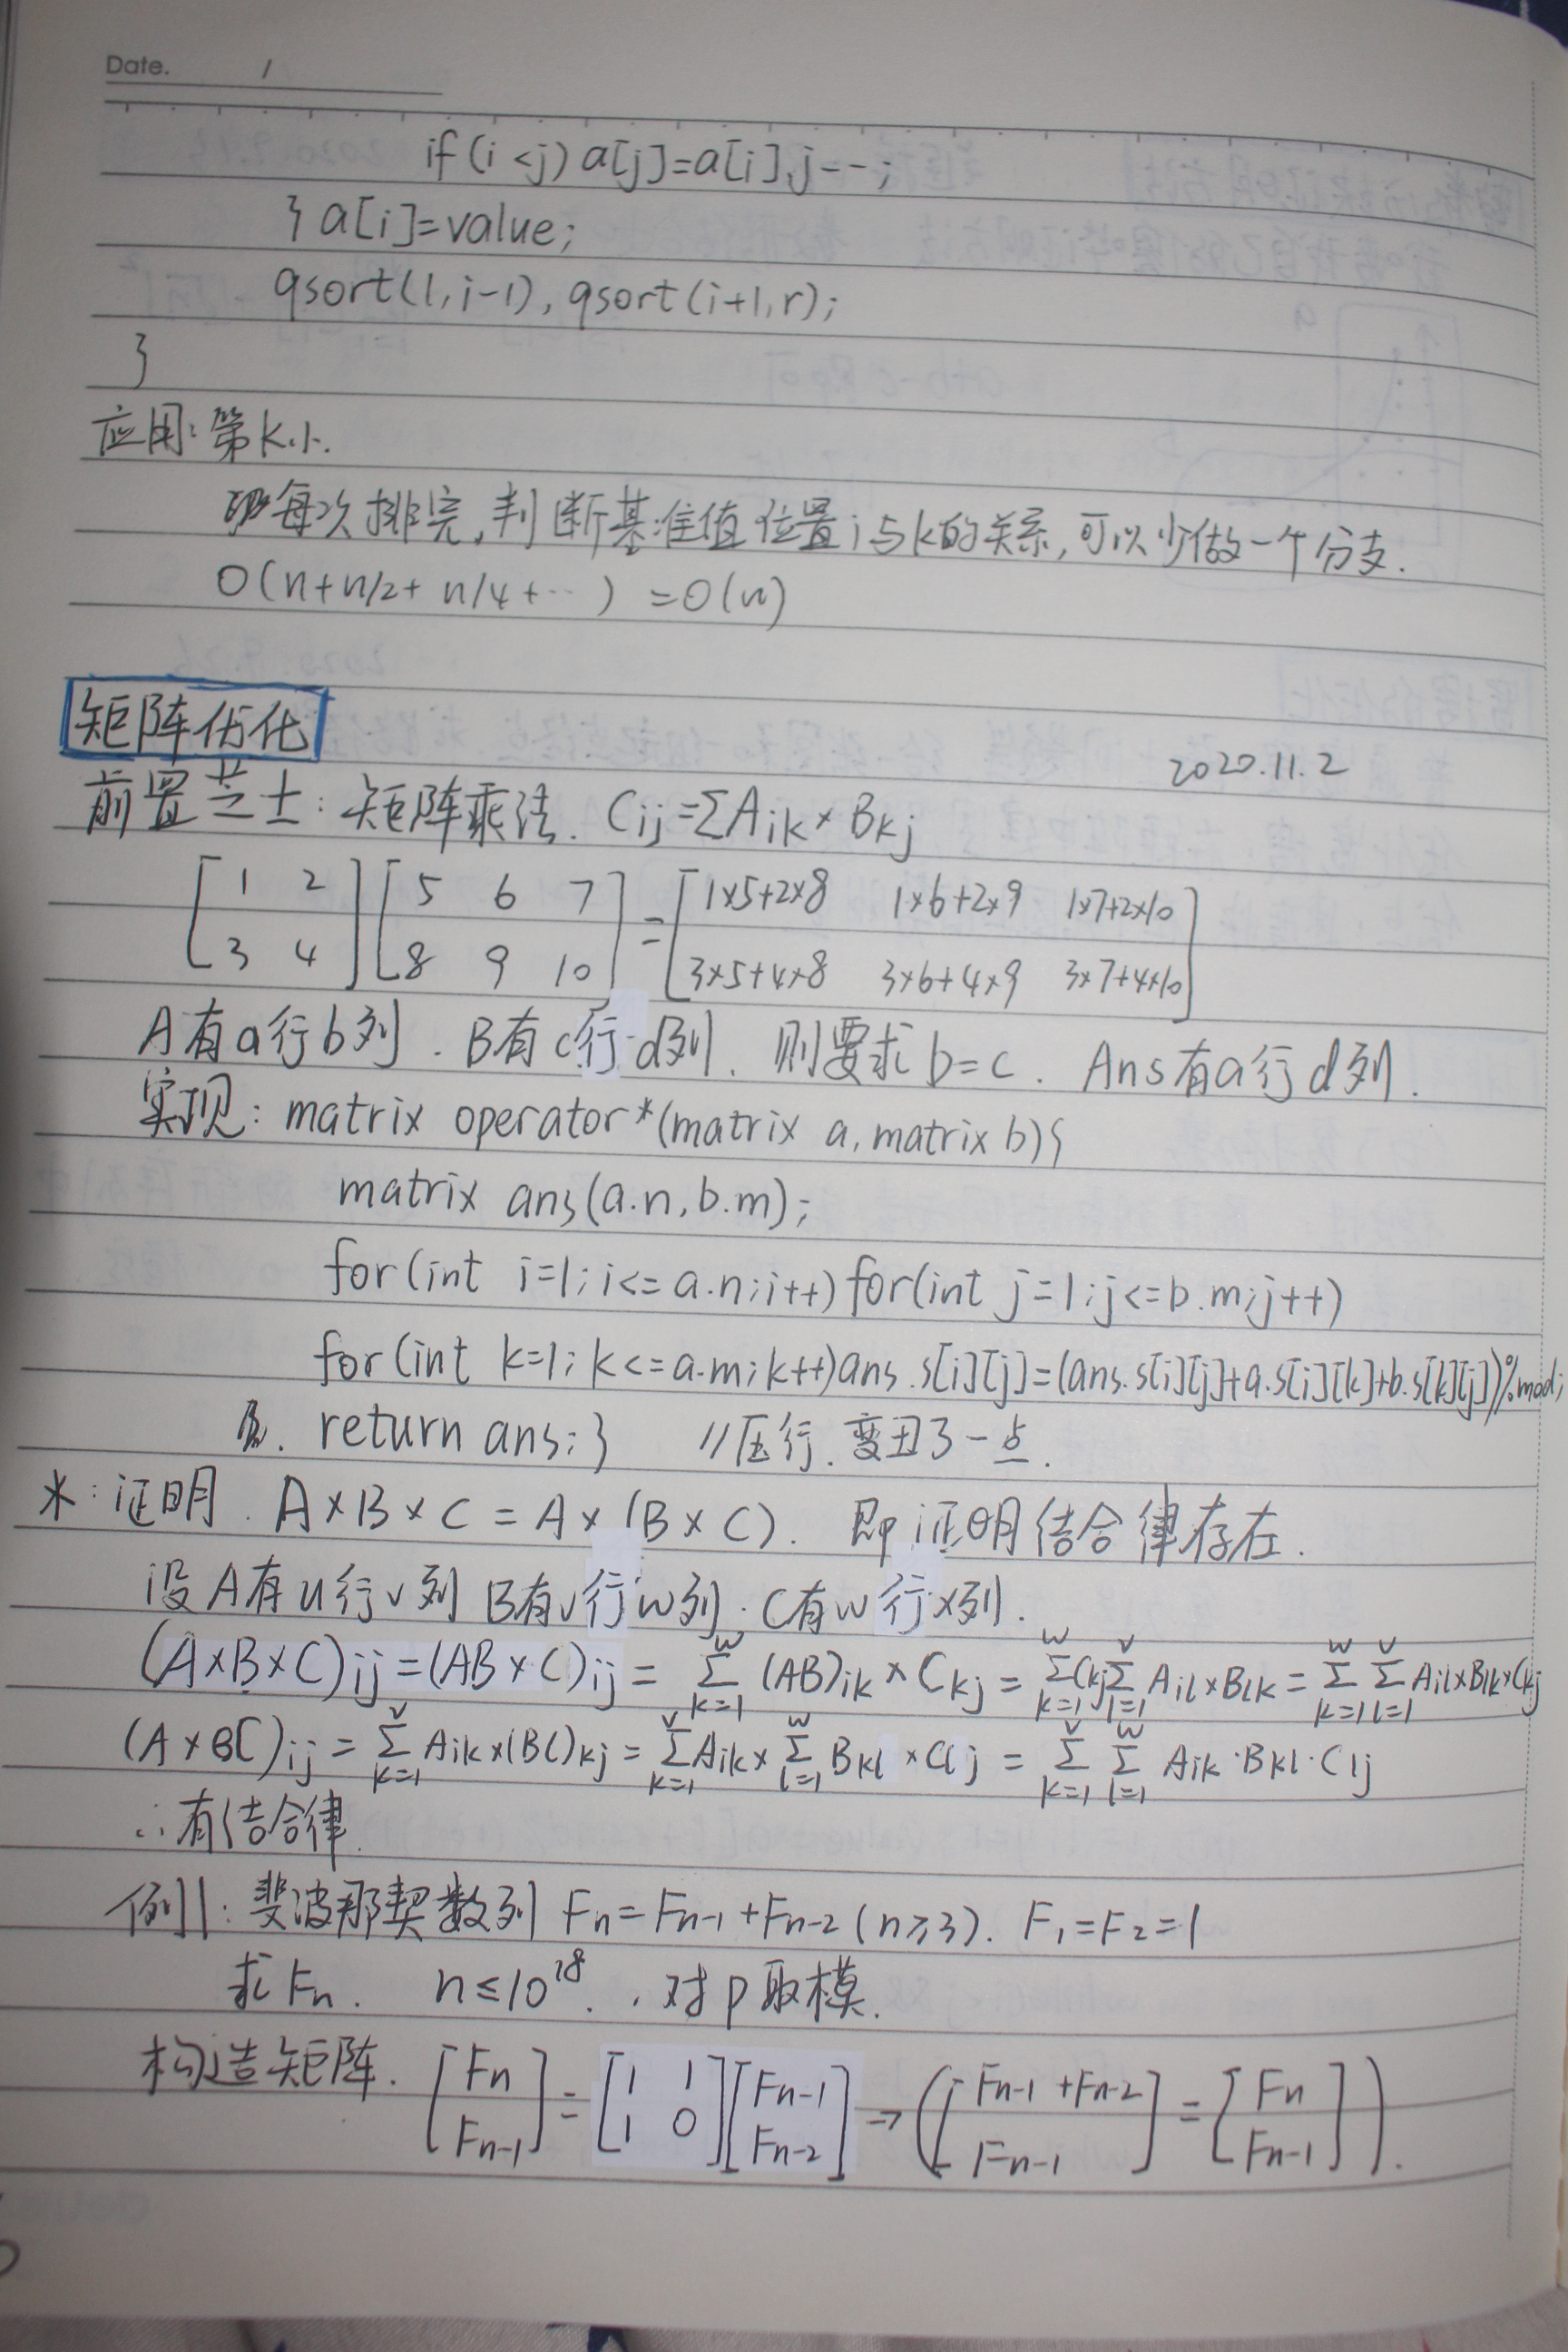 Date. /
if(i<j) a[j]=a[i],j--;
} a[i]=value;
qsort(l,i-1), qsort(i+1,r);
}
应用:第k小.
每次排完,判断基准值位置i与k的关系,可以少做一个分支.
O(n+n/2+n/4+…) =O(n)
矩阵优化
2020.11.2
前置芝士:矩阵乘法. Cij=ΣAik×Bkj
[1 2; 3 4][5 6 7; 8 9 10]=[1×5+2×8 1×6+2×9 1×7+2×10; 3×5+4×8 3×6+4×9 3×7+4×10]
A有a行b列. B有c行d列. 则要求b=c. Ans有a行d列.
实现: matrix operator*(matrix a,matrix b){
matrix ans(a.n,b.m);
for(int i=1;i<=a.n;i++)for(int j=1;j<=b.m;j++)
for(int k=1;k<=a.m;k++)ans.s[i][j]=(ans.s[i][j]+a.s[i][k]+b.s[k][j])%mod;
return ans;} //压行.变丑了一点.
*:证明. A×B×C=A×(B×C). 即证明结合律存在.
设A有u行v列 B有v行w列.C有w行x列.
(A×B×C)ij=(AB×C)ij=Σ(k=1..w)(AB)ik×Ckj=Σ(k=1..w)CkjΣ(l=1..v)Ail×Blk=Σ(k=1..w)Σ(l=1..v)Ail×Blk×Ckj
(A×BC)ij=Σ(k=1..v)Aik×(BC)kj=Σ(k=1..v)Aik×Σ(l=1..w)Bkl×Clj=Σ(k=1..v)Σ(l=1..w)Aik·Bkl·Clj
∴有结合律.
例1:斐波那契数列 Fn=Fn-1+Fn-2(n≥3). F1=F2=1
求Fn. n≤10^18.,对p取模.
构造矩阵. [Fn; Fn-1]=[1 1; 1 0][Fn-1; Fn-2]→([Fn-1+Fn-2; Fn-1]=[Fn; Fn-1]).